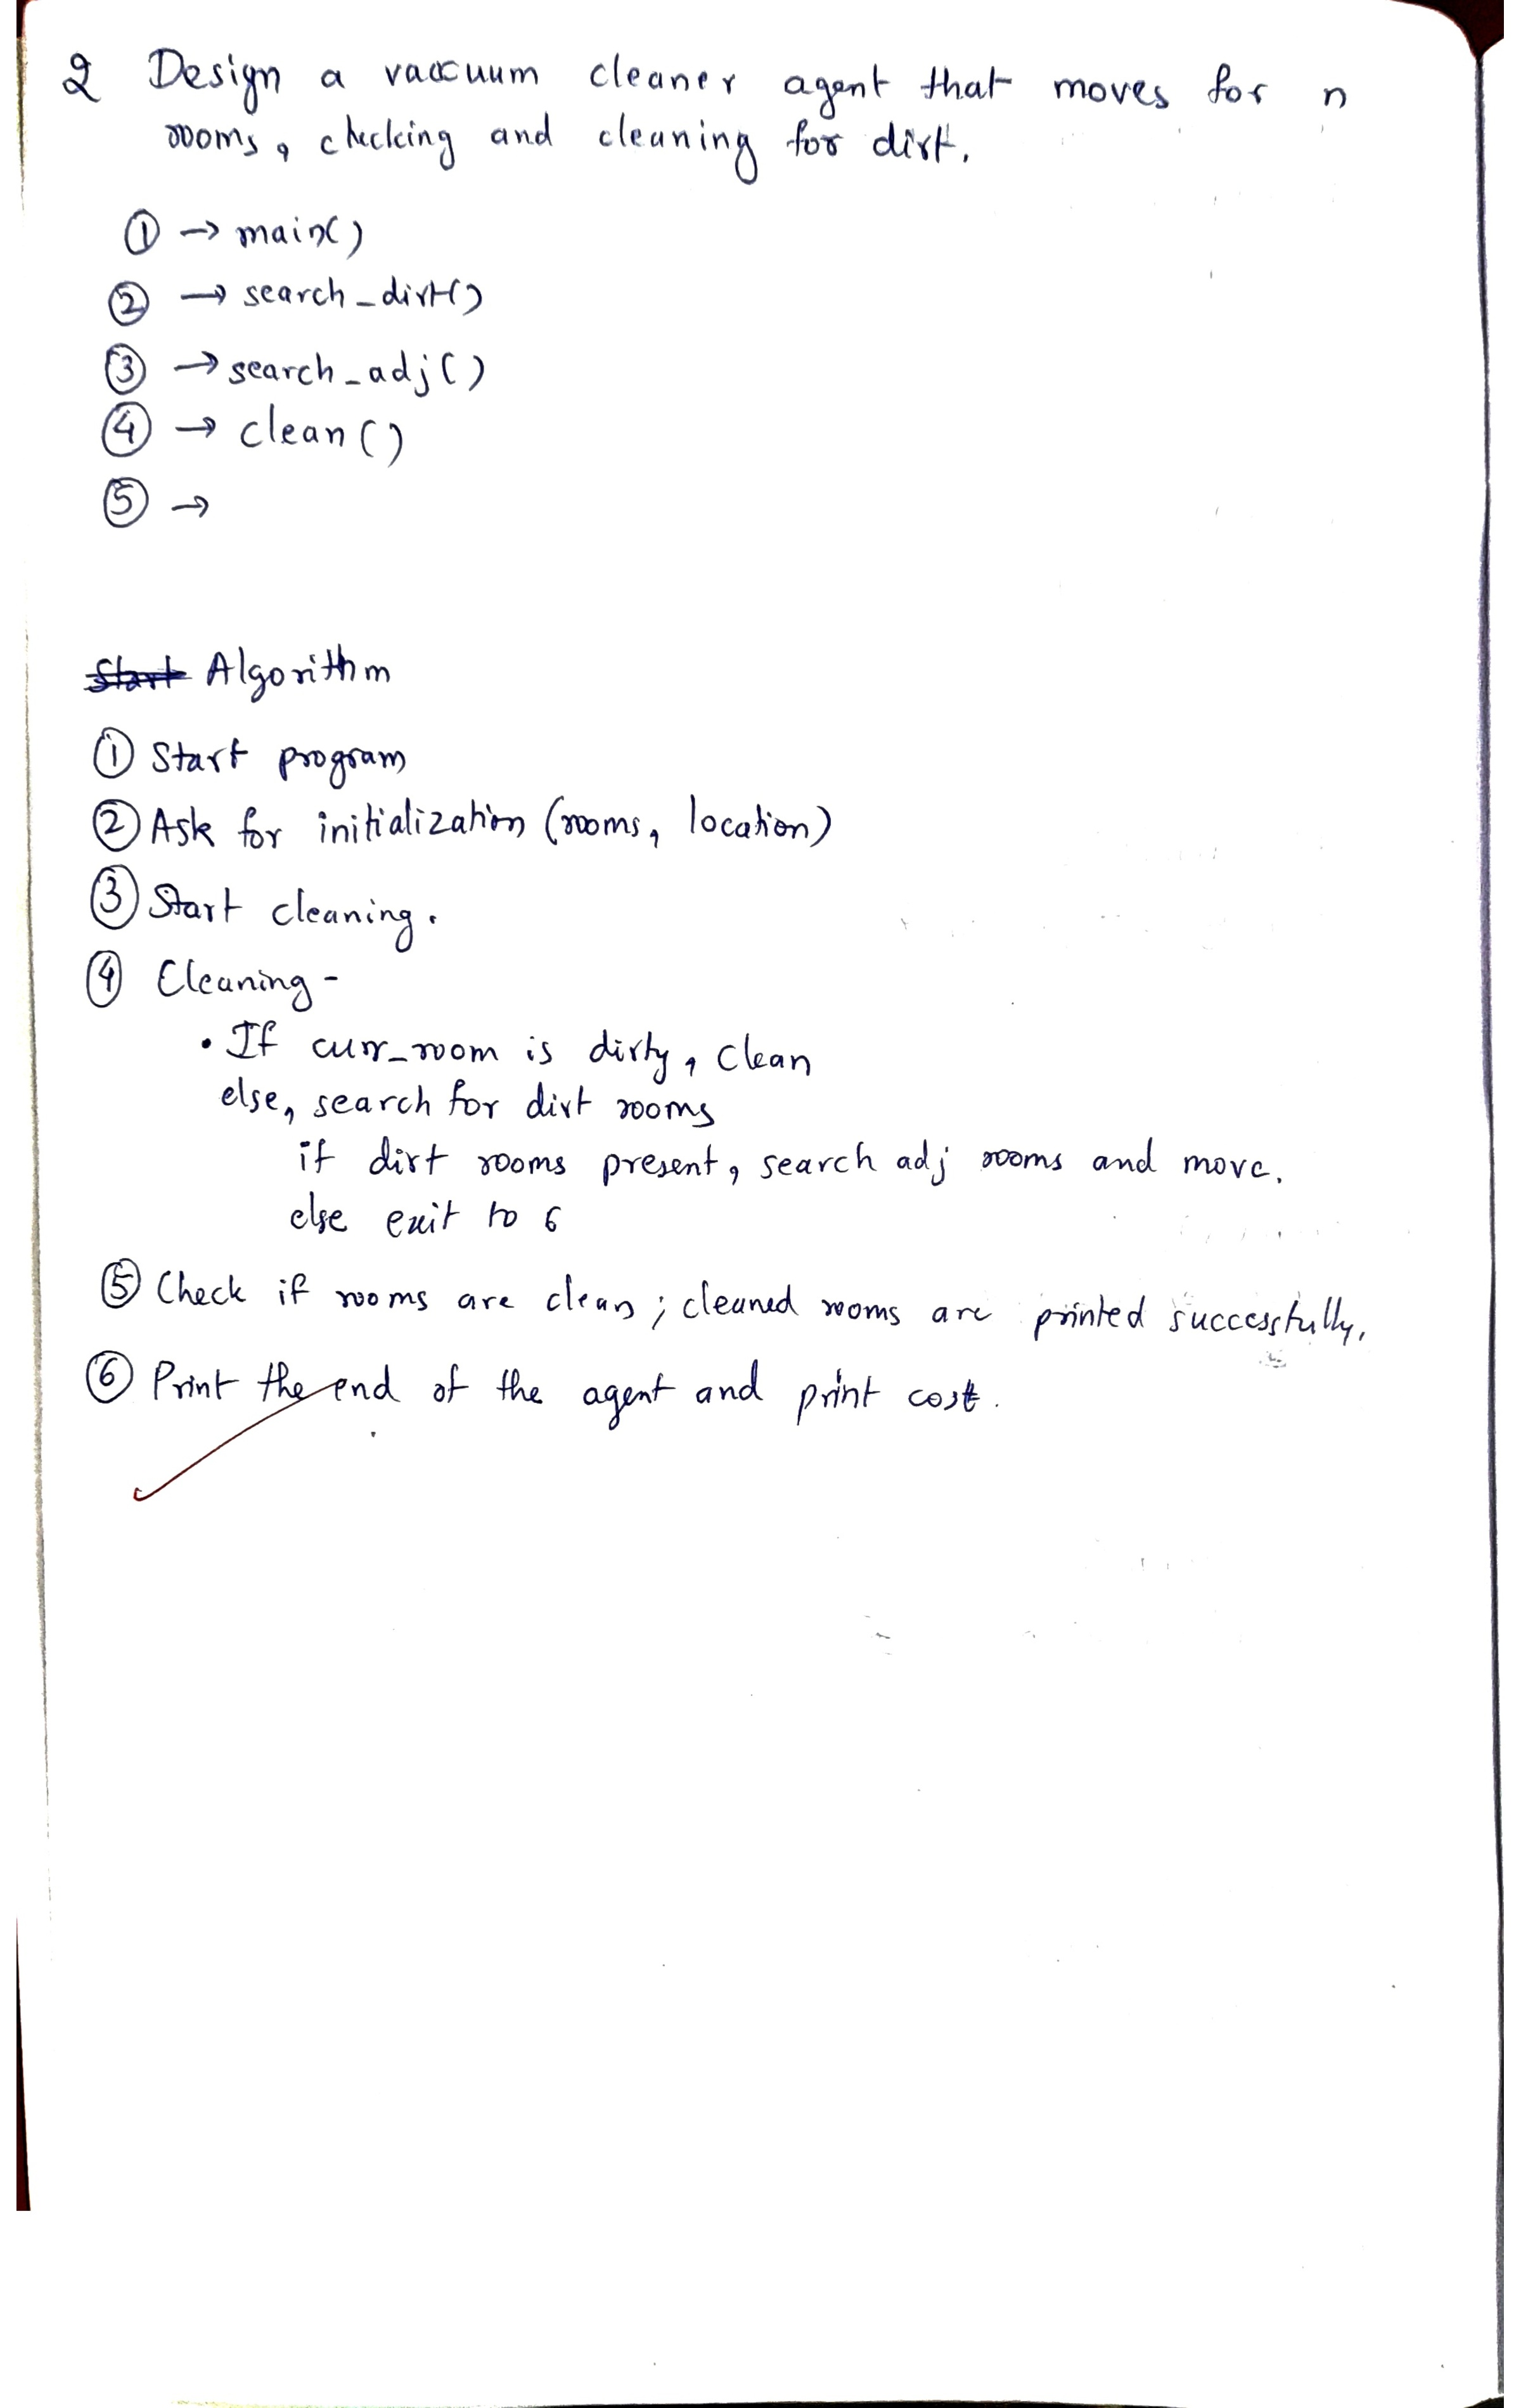 2 Design a vaccuum cleaner agent that moves for n
rooms, checking and cleaning for dirt.
① → main()
② → search_dirt()
③ → search_adj()
④ → clean()
⑤ →
Start Algorithm
① Start program
② Ask for initialization (rooms, location)
③ Start cleaning.
④ Cleaning -
• If curr_room is dirty, clean
else, search for dirt rooms
if dirt rooms present, search adj rooms and move.
else exit to 6
⑤ Check if rooms are clean; cleaned rooms are printed successfully.
⑥ Print the end of the agent and print cost.